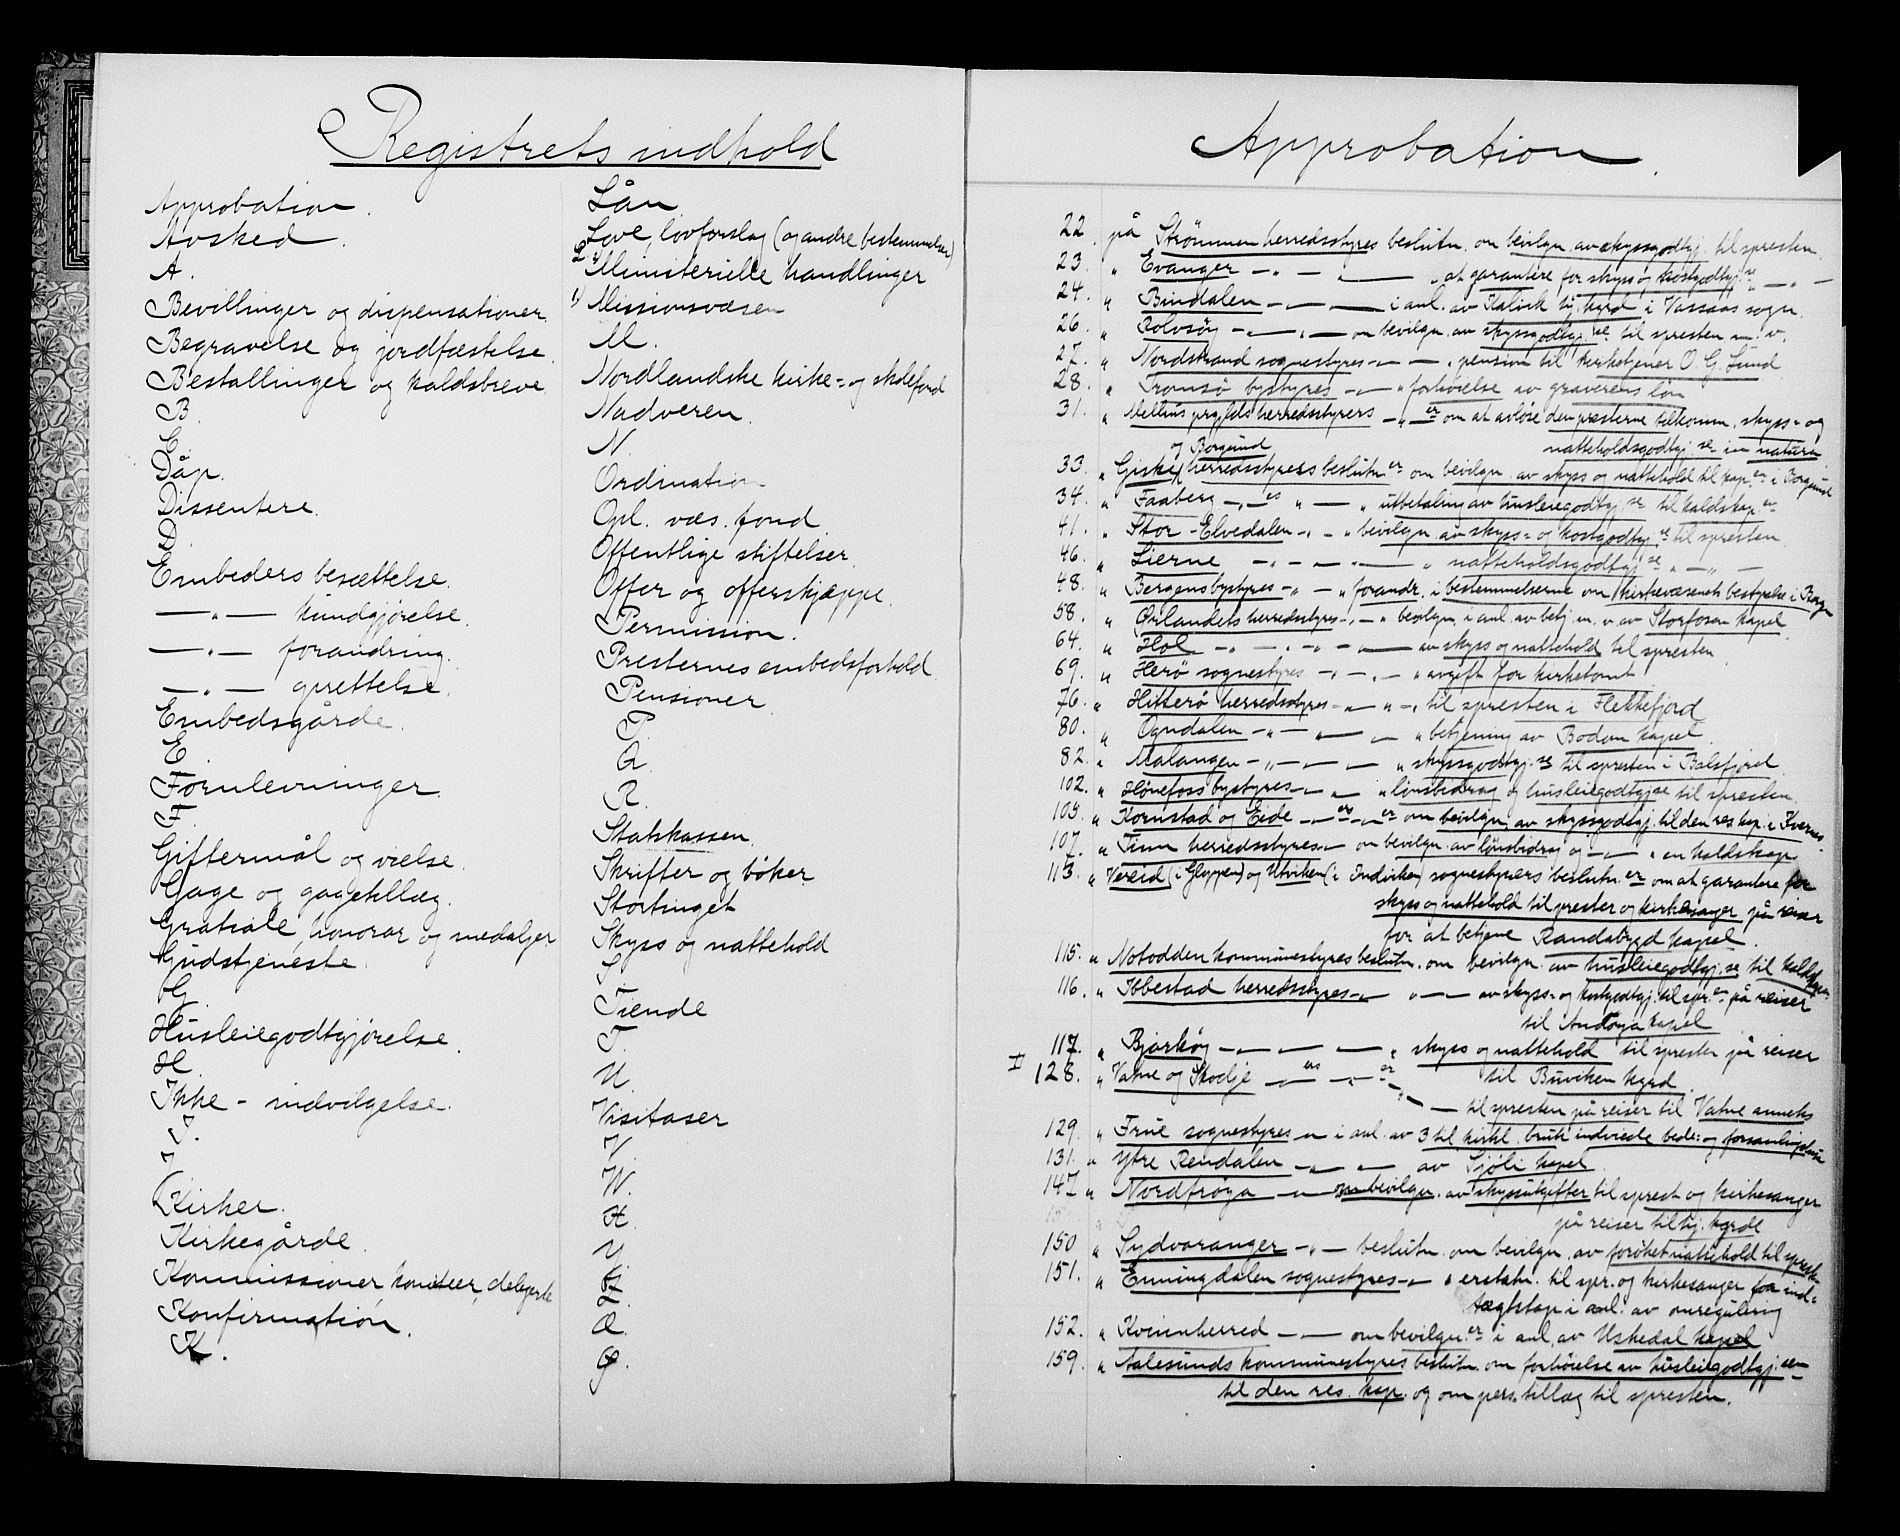 Registrets indhold
Approbation.
Avsked.
A.
Bevillinger og dispensationer
Begravelse og jordfæstelse.
Bestallinger og kaldsbreve
B.
C.
Dåp.
Dissentere.
D.
Embeders besættelse.
— „ — kundgjørelse.
— „ — forandring.
— „ — oprettelse.
Embedsgårde.
E
Fornlevninger
F.
Giftermål og vielse.
Gage og gagetillæg.
Gratiale, honorar og medaljer
Gudstjeneste.
G.
Husleiegodtgjørelse.
H.
Ikke - indvilgelse.
I.
J.
Kirker.
Kirkegårde.
Kommissioner, komiteer, delegerte
Konfirmation.
K.
Lån
Love, lovforslag (og andre bestemmelser)
L.
2) Ministerielle handlinger
1) Missionsvæsen
M.
Nordlandske kirke- og skolefond
Nadveren.
N.
Ordination
Opl. væs. fond
Offentlige stiftelser.
Offer og offerskjæppe.
Permission.
Presternes embedsforhold
Pensioner
P.
Q.
R.
Statskassen
Skrifter og bøker
Stortinget
Skyss og nattehold
S.
Tiende
T.
U.
Visitaser
V.
W.
X.
Y.
Z.
Æ.
Ø.
Approbation.
22. på Strømmen herredsstyres beslutn. om bevilgn. av skyssgodtgj. til spresten.
23. „ Evanger — „ — „ at garantere for skyss og kostgodtgj.se „ — „ —
24. „ Bindalen — „ — i anl. av Kalvik hj. kgrd i Vassaas sogn.
26. „ Rolvsøy — „ — „ — om bevilgn. av skyssgodtgj.se til spresten m. v.
27. „ Nordstrand sognestyres — „ — „ pension til kirketjener O. G. Lund
28. „ Tromsø bystyres — „ — „ forhøielse av graverens løn
31. „ herredsstyrers — „ — er om at avløse den præsterne tilkomm. skyss- og
nattehold​sgodtgj.se in natura
33. „ Giske og Borgund herredsstyrers beslutn.er om bevilgn. av skyss og nattehold til kap.er i Borgund
34. „ Faaberg — „ — es „ — „ utbetaling av husleiegodtgj.se til kaldskap.er
41. „ Stor-Elvedalen — „ — „ bevilgn. av skyss- og kostgodtgj.se til spresten
46. „ Lierne — „ — „ — „ nattehold​sgodtgj.se „ — „ —
48. „ Bergens bystyres — „ — „ forandr. i bestemmelserne om kirkevæsenets bestyrelse i Bergen
58. „ Ørlandets herredsstyres — „ — „ bevilgn. i anl. av betj. m. v. av Storfosen kapel
64. „ Hol — „ — „ — „ — av skyss og nattehold til spresten.
69. „ Herø sognestyres — „ — „ — „ avgift for kirketomt
76. „ Hitterø herredsstyres — „ — „ — „ til spresten i Flekkefjord
80. „ Ogndalen — „ — „ — „ betjening av Bodom kapel
82. „ Malangen — „ — „ — „ skyssgodtgj.se til spresten i Balsfjord
102. „ Hønefoss bystyres — „ — „ lønsbidrag og husleiegodtgjse til spresten
105. „ Kornstad og Eide — „ — es — „ — er om bevilgn. av skyssgodtgj. til den res. kap. i Kvernes.
107. „ Tinn herredsstyres — „ om bevilgn. av lønsbidrag og — „ — „ en kaldskap
113. „ Vereid (i Gloppen) og Utviken (i Indviken) sognestyrers beslutn.er om at garantere for
skyss og nattehold til prester og kirkesanger på reiser
for at betjene Randabygd kapel.
115. „ Notodden kommunestyres beslutn. om bevilgn. av husleiegodtgj.se til kaldskap.
116. „ Ibbestad herredsstyres — „ — „ — av skyss- og kostgodtgj. til spr.en på reiser
til Andørja kapel
117. „ Bjarkøy — „ — „ — „ skyss og nattehold til spresten på reiser
til Buviken kgrd.
II 128. „ Vatne og Skodje — „ — es — „ — er
„ — til spresten på reiser til Vatne anneks
129. „ Frue sognestyres — „ i anl. av 3 til kirkl. bruk indviede bede- og forsamlingshuse
131. „ Ytre Rendalen — „ — „ — av Sjøli kapel.
147. „ Nordfrøya — „ — om bevilgn. av skyssutgifter til sprest og kirkesanger
på reiser til hj. kgrde
150 „ Sydvaranger — „ — beslutn. om bevilgn. av forøket nattehold til sprest.
151. „ Enningdalen sognestyres — „ — „ erstatn. til spr. og kirkesanger for ind-
tægtstap i anl. av omregulering
152. „ Kvinnherred — „ — om bevilgn.er i anl. av Uskedal kapel
159. „ Aalesunds kommunestyres beslutn. om forhøielse av husleiegodtgj.sen
til den res. kap. og om pers. tillæg til spresten.